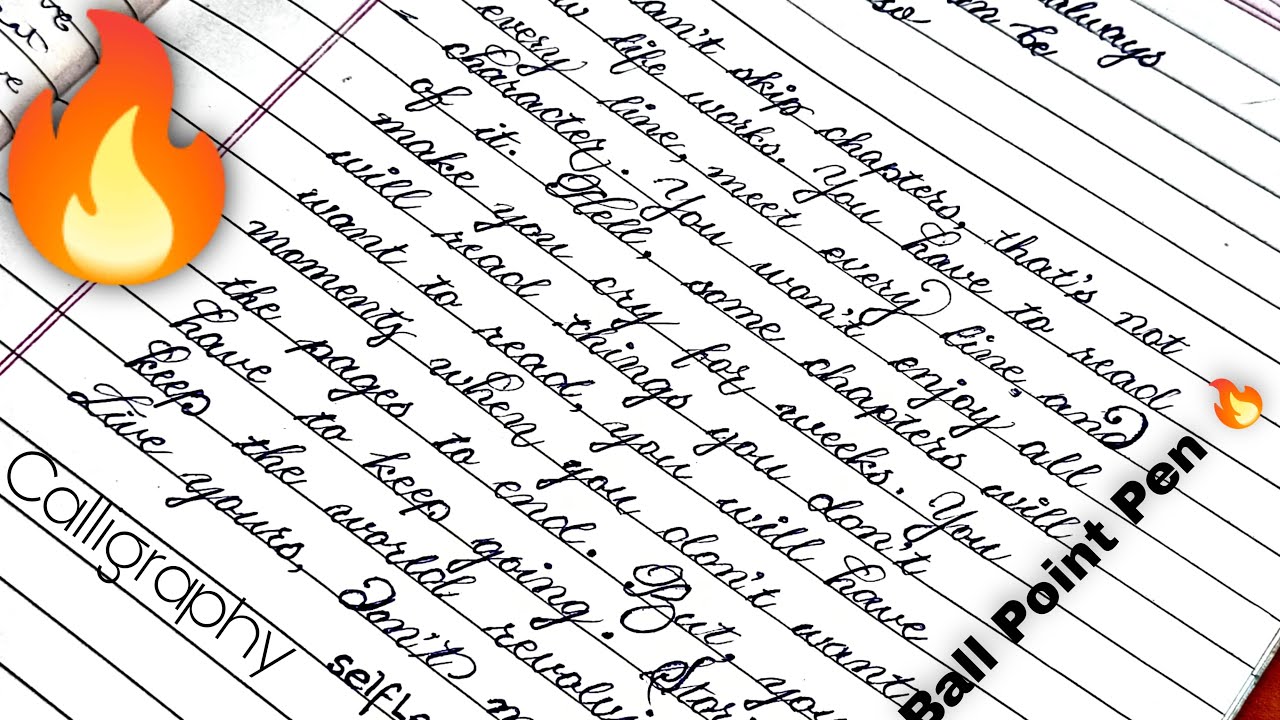 always
so
can't skip chapters, that's not
life works. You have to read
every line, meet every line, and
character. You won't enjoy all
of it. Hell, some chapters will
make you cry for weeks. You
will read things you don't
want to read, you will have
moments when you don't want
the pages to end. But, you
have to keep going. Stor
keep the world revolvi
Live yours, Don't
Calligraphy
selfL
Ball Point Pen